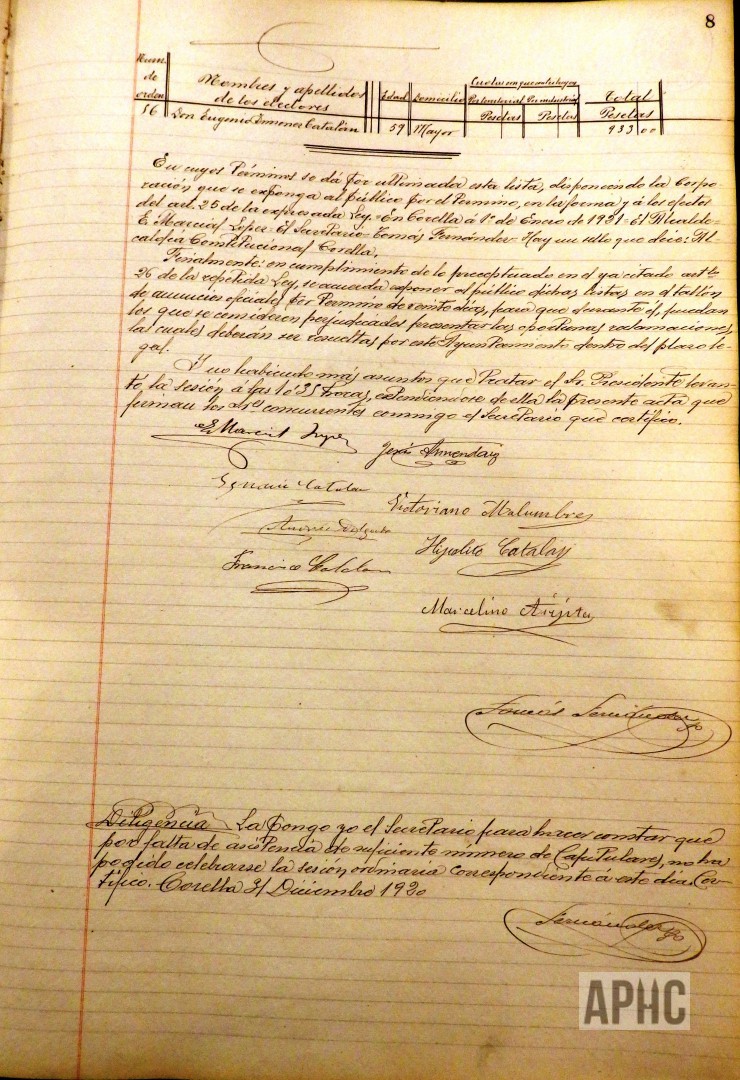 8
Num. de orden | Nombres y apellidos de los electores | Edad | Domicilio | Cuotas con que contribuyen Por territorial Pesetas | Por industrial Pesetas | Total Pesetas
56 | Don Eugenio Jimenez Catalán | 59 | Mayor | 933 00
En cuyos términos se dá por ultimada esta lista, disponiendo la Corpo-
ración que se exponga al público por el termino, en la forma y á los efectos
del art. 25 de la expresada Ley. En Corella á 1º de Enero de 1931 = El Alcalde=
E. Marcial Lopez = El Secretario = Tomás Fernández = Hay un sello que dice: Al-
caldia Constitucional Corella.
Finalmente: en cumplimiento de lo preceptuado en el ya citado artlo
26 de la repetida Ley, se acuerda exponer al público dichas listas en el tablón
de anuncios oficiales por termino de veinte dias, para que durante él, puedan
los que se consideren perjudicados presentar las oportunas reclamaciones,
las cuales deberán ser resueltas por este Ayuntamiento dentro del plazo le-
gal.
Y no habiendo más asuntos que tratar el Sr. Presidente levan-
to la sesión á las 16'35 horas, extendiendose de ella la presente acta que
firman los Sres concurrentes conmigo el Secretario que certifico.
E. Marcial Lopez
Jesús Armendariz
Ignacio Catalan
Victoriano Malumbres
Andrés Delgado
Hipolito Catalan
Francisco Catalan
Marcelino
Tomás Fernández
Diligencia La pongo yo el Secretario para hacer constar que
por falta de asistencia de suficiente número de Capitulares, no ha
podido celebrarse la sesión ordinaria correspondiente á este día. Cer-
tífico. Corella 31 Diciembre 1930
Fernández
APHC